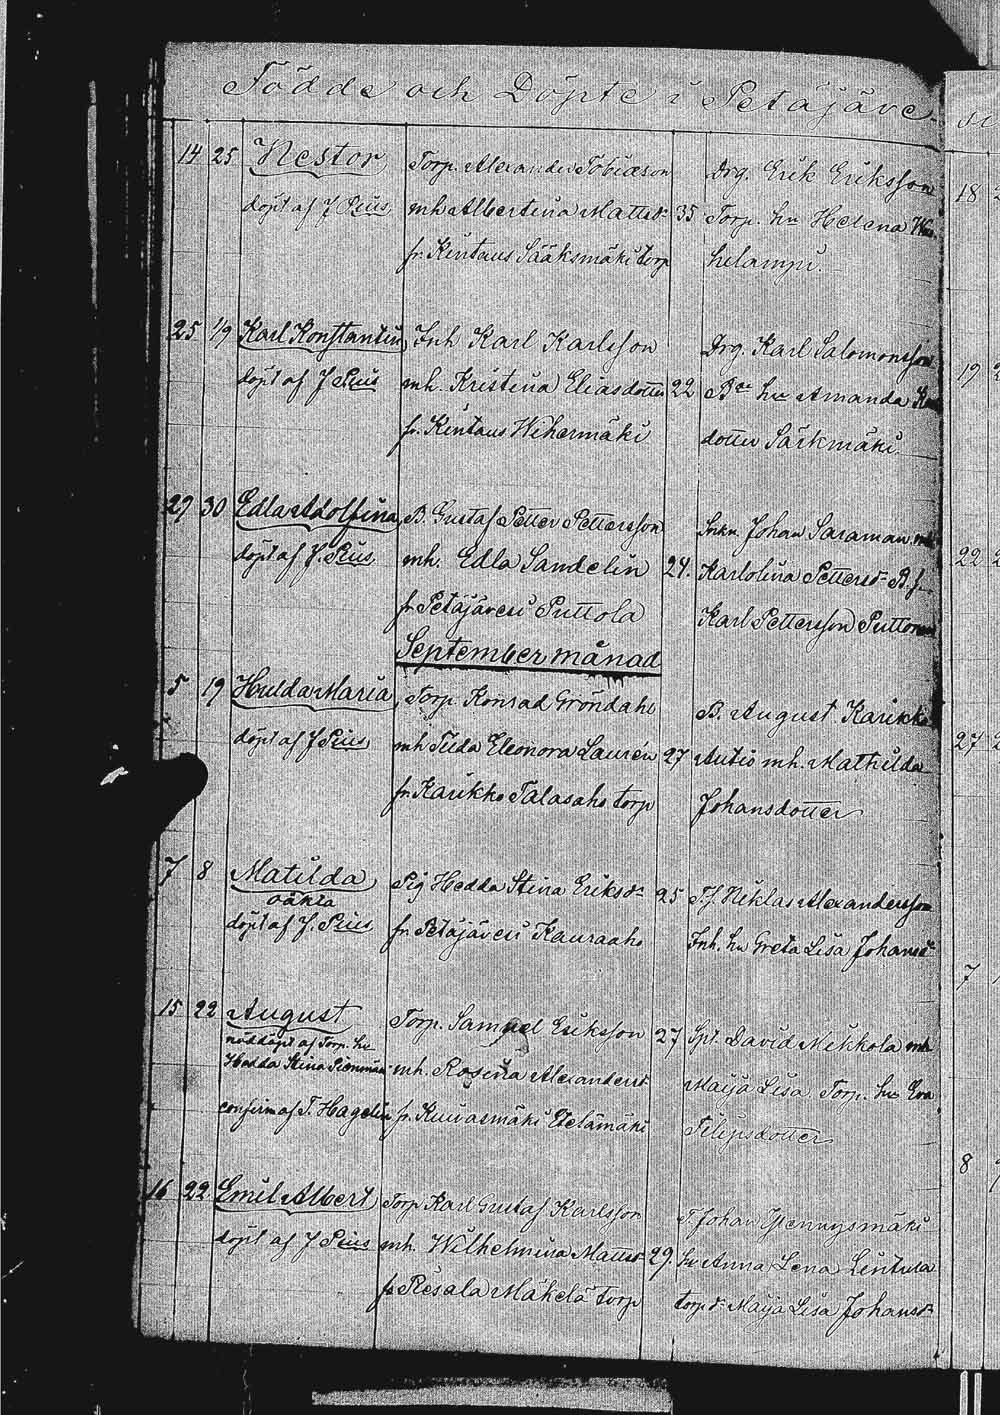 Födde och Döpte i Petäjäve-
14 25 Nestor Torp. Alexander Tobiasson Drg. Erik Eriksson
döpt af J Pius mh Albertina Mattsdr 35 Torp. hu Helena
fr. Kintaus Sääksmäki torp helampi.
25 1/9 Karl Konstantin Inh Karl Karlsson Drg. Karl Salomonsson
döpt af J Pius mh. Kristina Eliasdotter 22 hu Amanda
fr. Kintaus Wihermäki dotter Särkmäki
29 30 Edla Adolfina B. Gustaf Petter Pettersson Snkn. Johan Saraman
döpt af J. Pius mh. Edla Sandelin 24. Karlolina Pettersdr B.
fr Petäjävesi Puttola Karl Pettersson
September månad
5 19 Hulda Maria Torp Konrad Gröndahl B. August Karikko
döpt af J Pius mh Tilda Eleonora Laurén 27 Autio mh. Mathilda
fr. Karikko Talasaho torp Johansdotter
7 8 Matilda Pig Hedda Stina Eriksdr 25 T.f. Niklas Alexandersson
oäkta
döpt af J. Pius fr. Petäjävesi Kauraaho Inh. hu Greta Lisa Johansdr
15 22 August Torp. Samuel Eriksson 27 Spt. David Mikkola mh
nöddöpt af Torp. hu
Hedda Stina mh. Rosina Alexandersdr Maija Lisa. Torp. hu Eva
confirm af T. Hagelin fr. Kuivasmäki Etelämäki Filipsdotter
16 22 Emil Albert Torp Karl Gustaf Karlsson T. Johan
döpt af J Pius mh. Wilhelmina Mattsdr 29. hu Anna Lena Lintula
fr Piesala Mäkelä torp torp dr Maija Lisa Johansdr
18
19
22
27
7
8